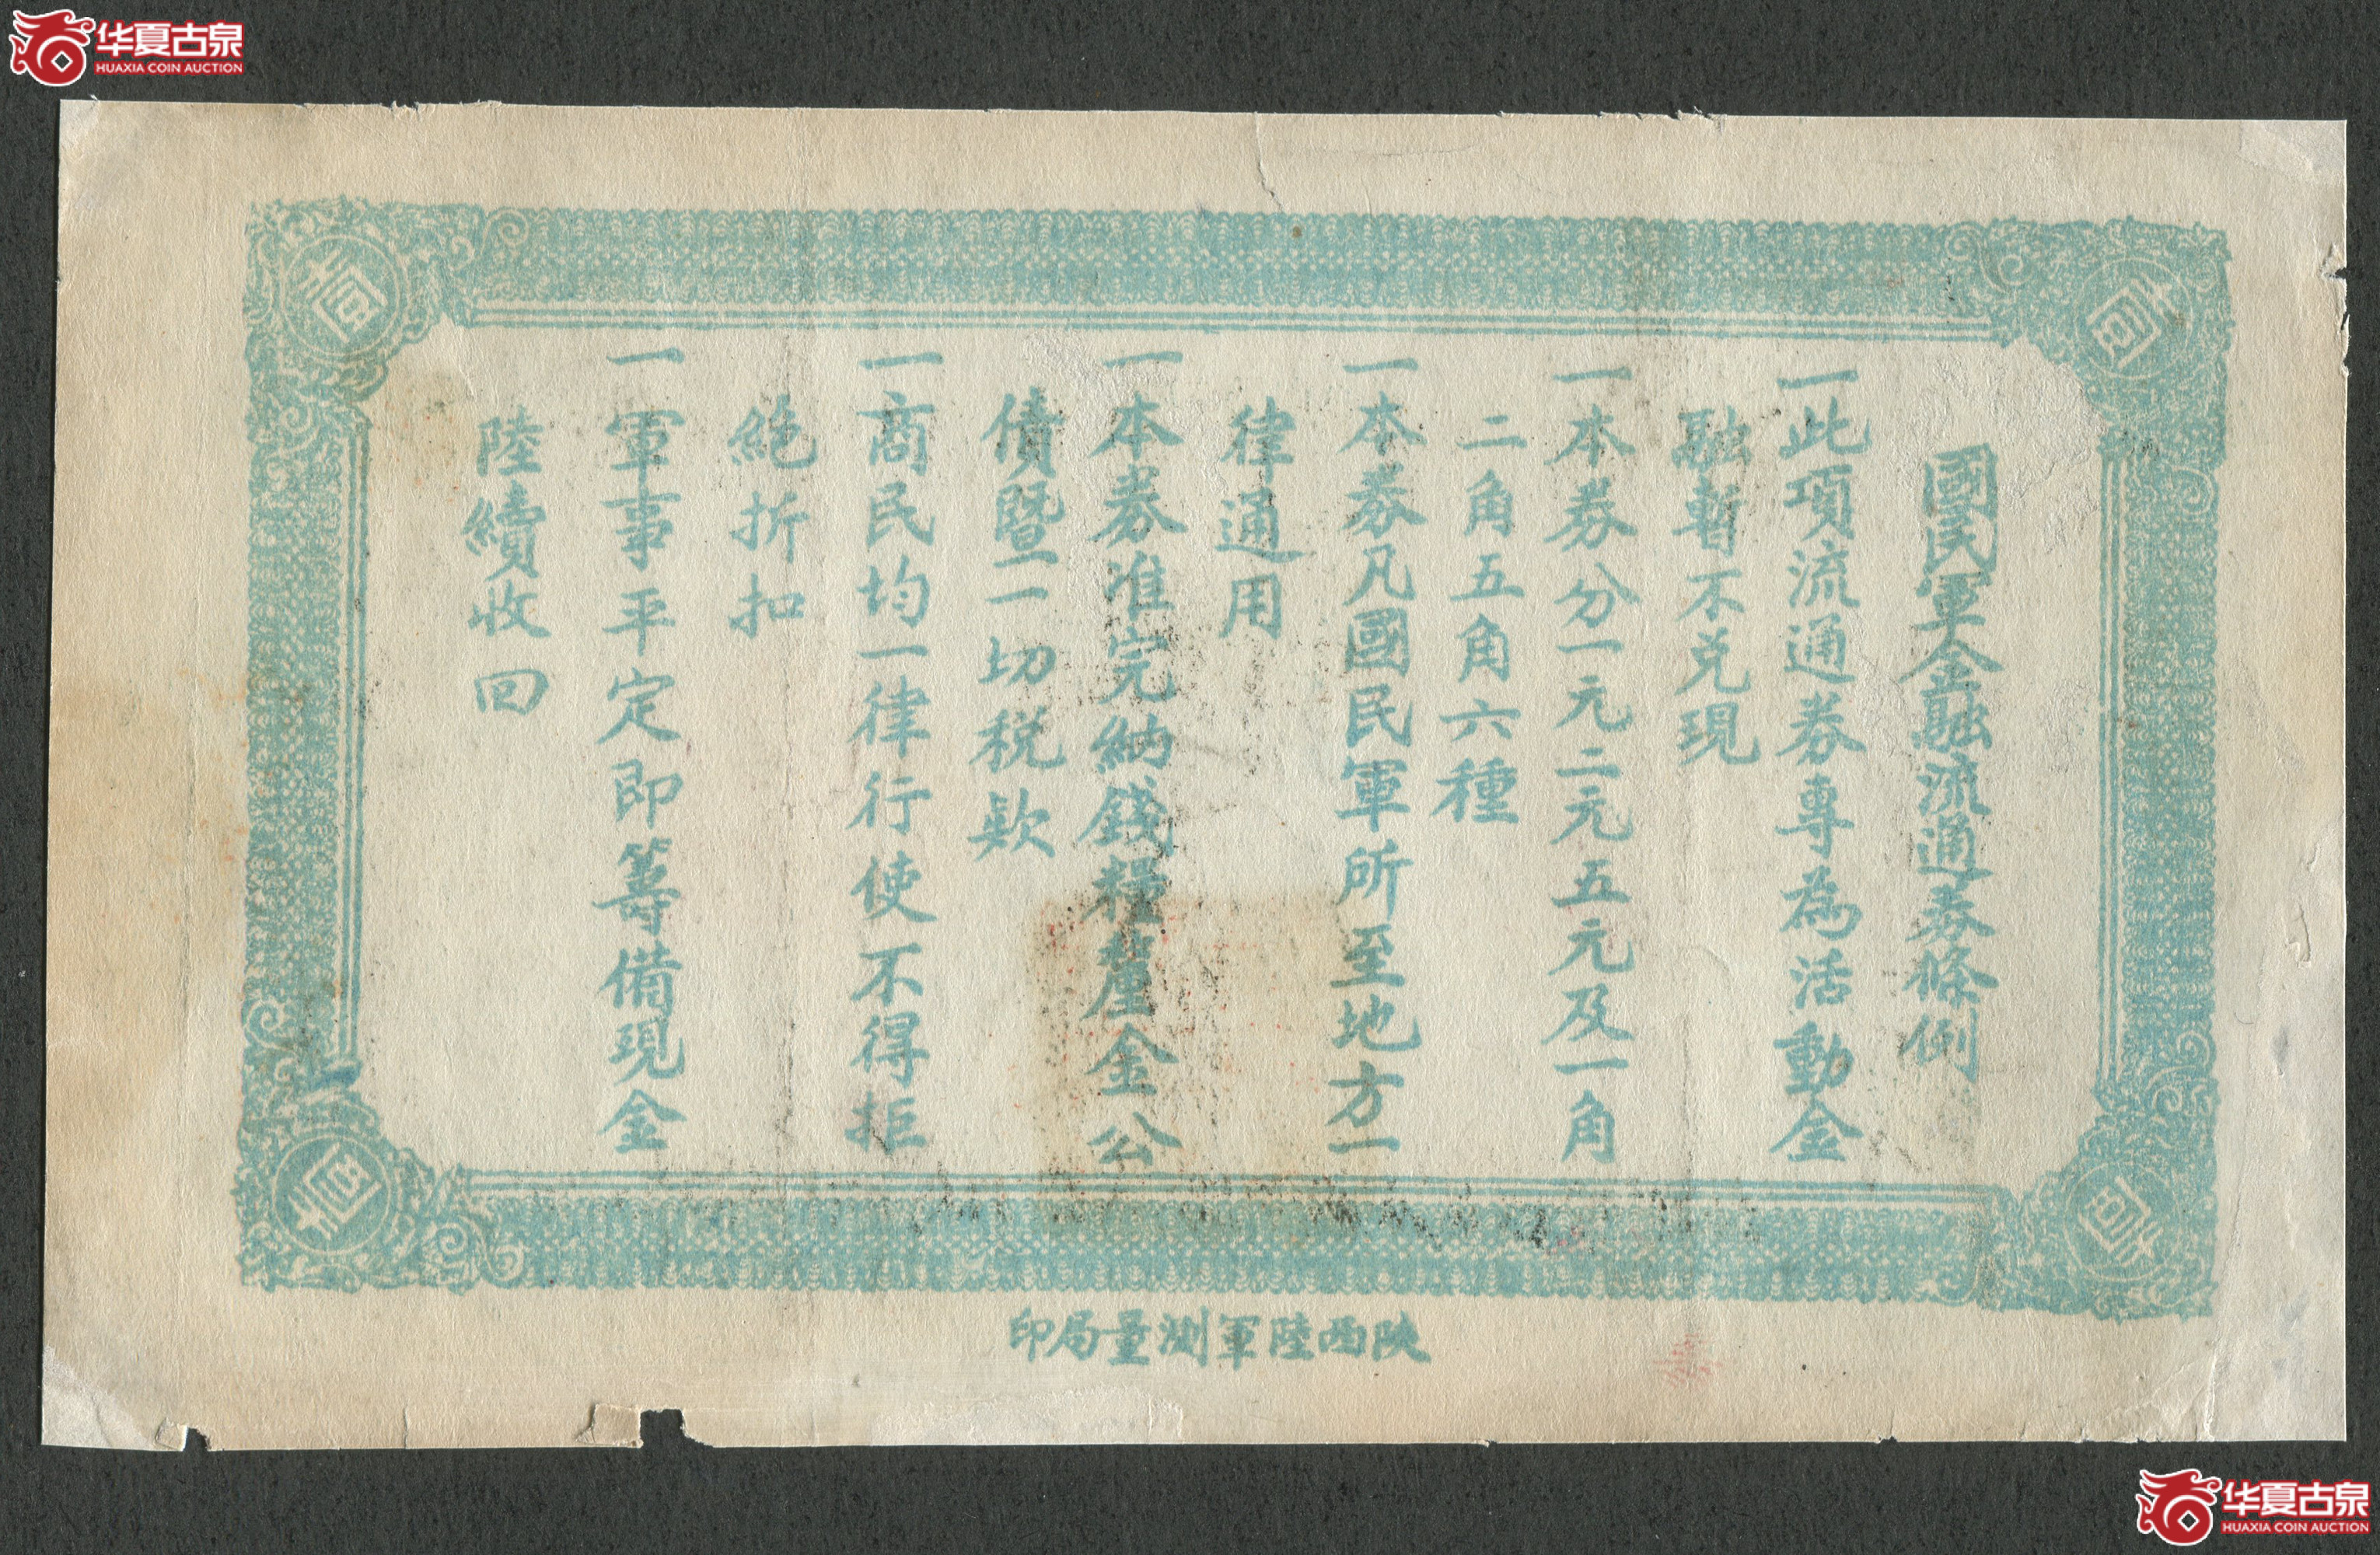 华夏古泉
HUAXIA COIN AUCTION
壹
壹
國民軍金融流通券條例
一此項流通券專為活動金
融暫不兑現
一本券分一元二元五元及一角
二角五角六種
一本券凡國民軍所至地方一
律通用
一本券准完納錢糧釐金公
債暨一切税欵
一商民均一律行使不得拒
絶折扣
一軍事平定即籌備現金
陸續收回
壹
壹
陝西陸軍測量局印
华夏古泉
HUAXIA COIN AUCTION